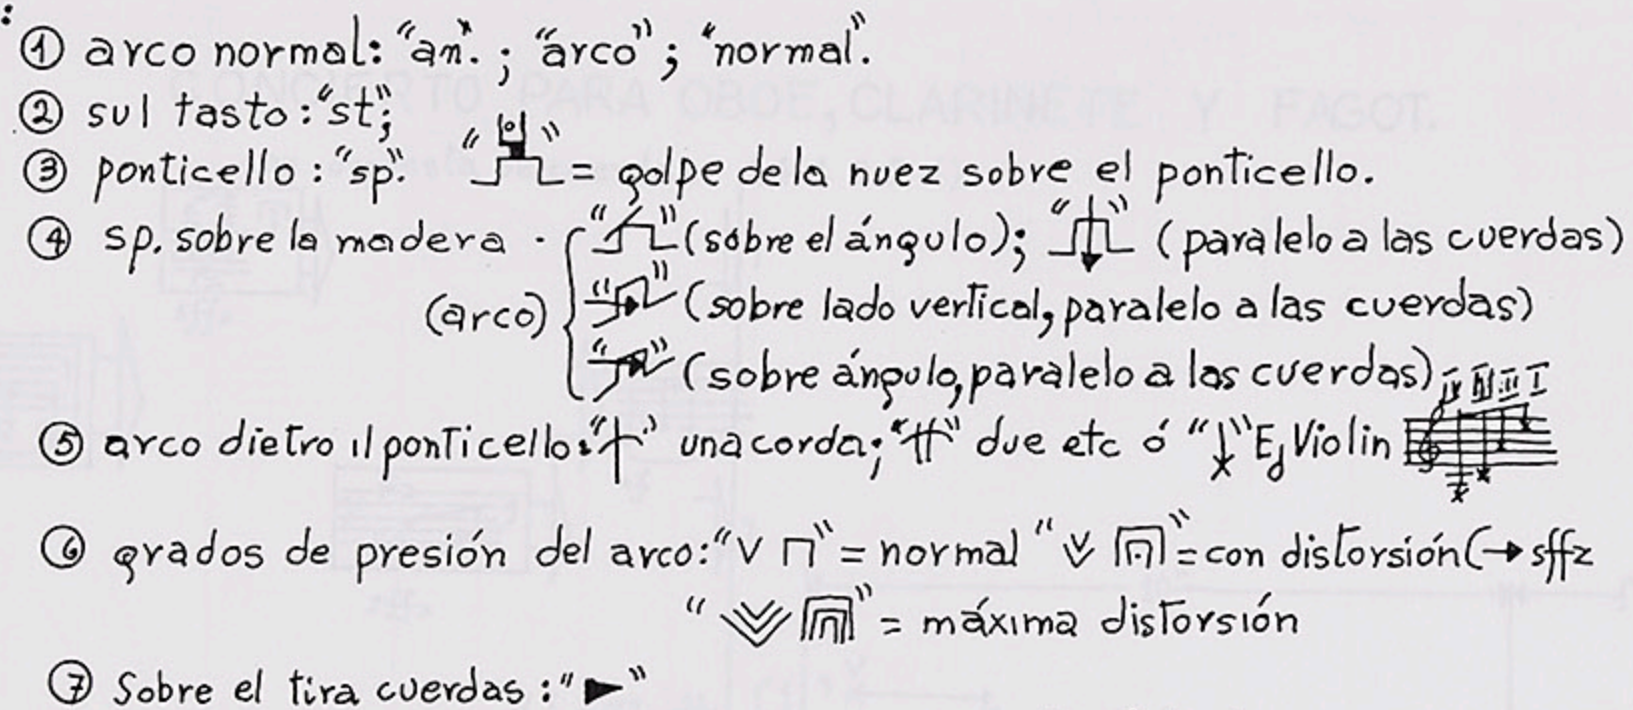 ① arco normal: "an". ; "arco"; "normal".
② sul tasto: "st";
③ ponticello: "sp". " " = golpe de la nuez sobre el ponticello.
④ sp. sobre la madera . " " (sobre el ángulo); " " (paralelo a las cuerdas)
(arco) " " (sobre lado vertical, paralelo a las cuerdas)
" " (sobre ángulo, paralelo a las cuerdas)
IV III II I
⑤ arco dietro il ponticello: " " una corda; " " due etc ó " " Ej Violin
⑥ grados de presión del arco: "V ⊓" = normal " " = con distorsión (→ sffz
" " = máxima distorsión
⑦ Sobre el tira cuerdas: "►"
CONCIERTO PARA OBOE, CLARINETE Y FAGOT.